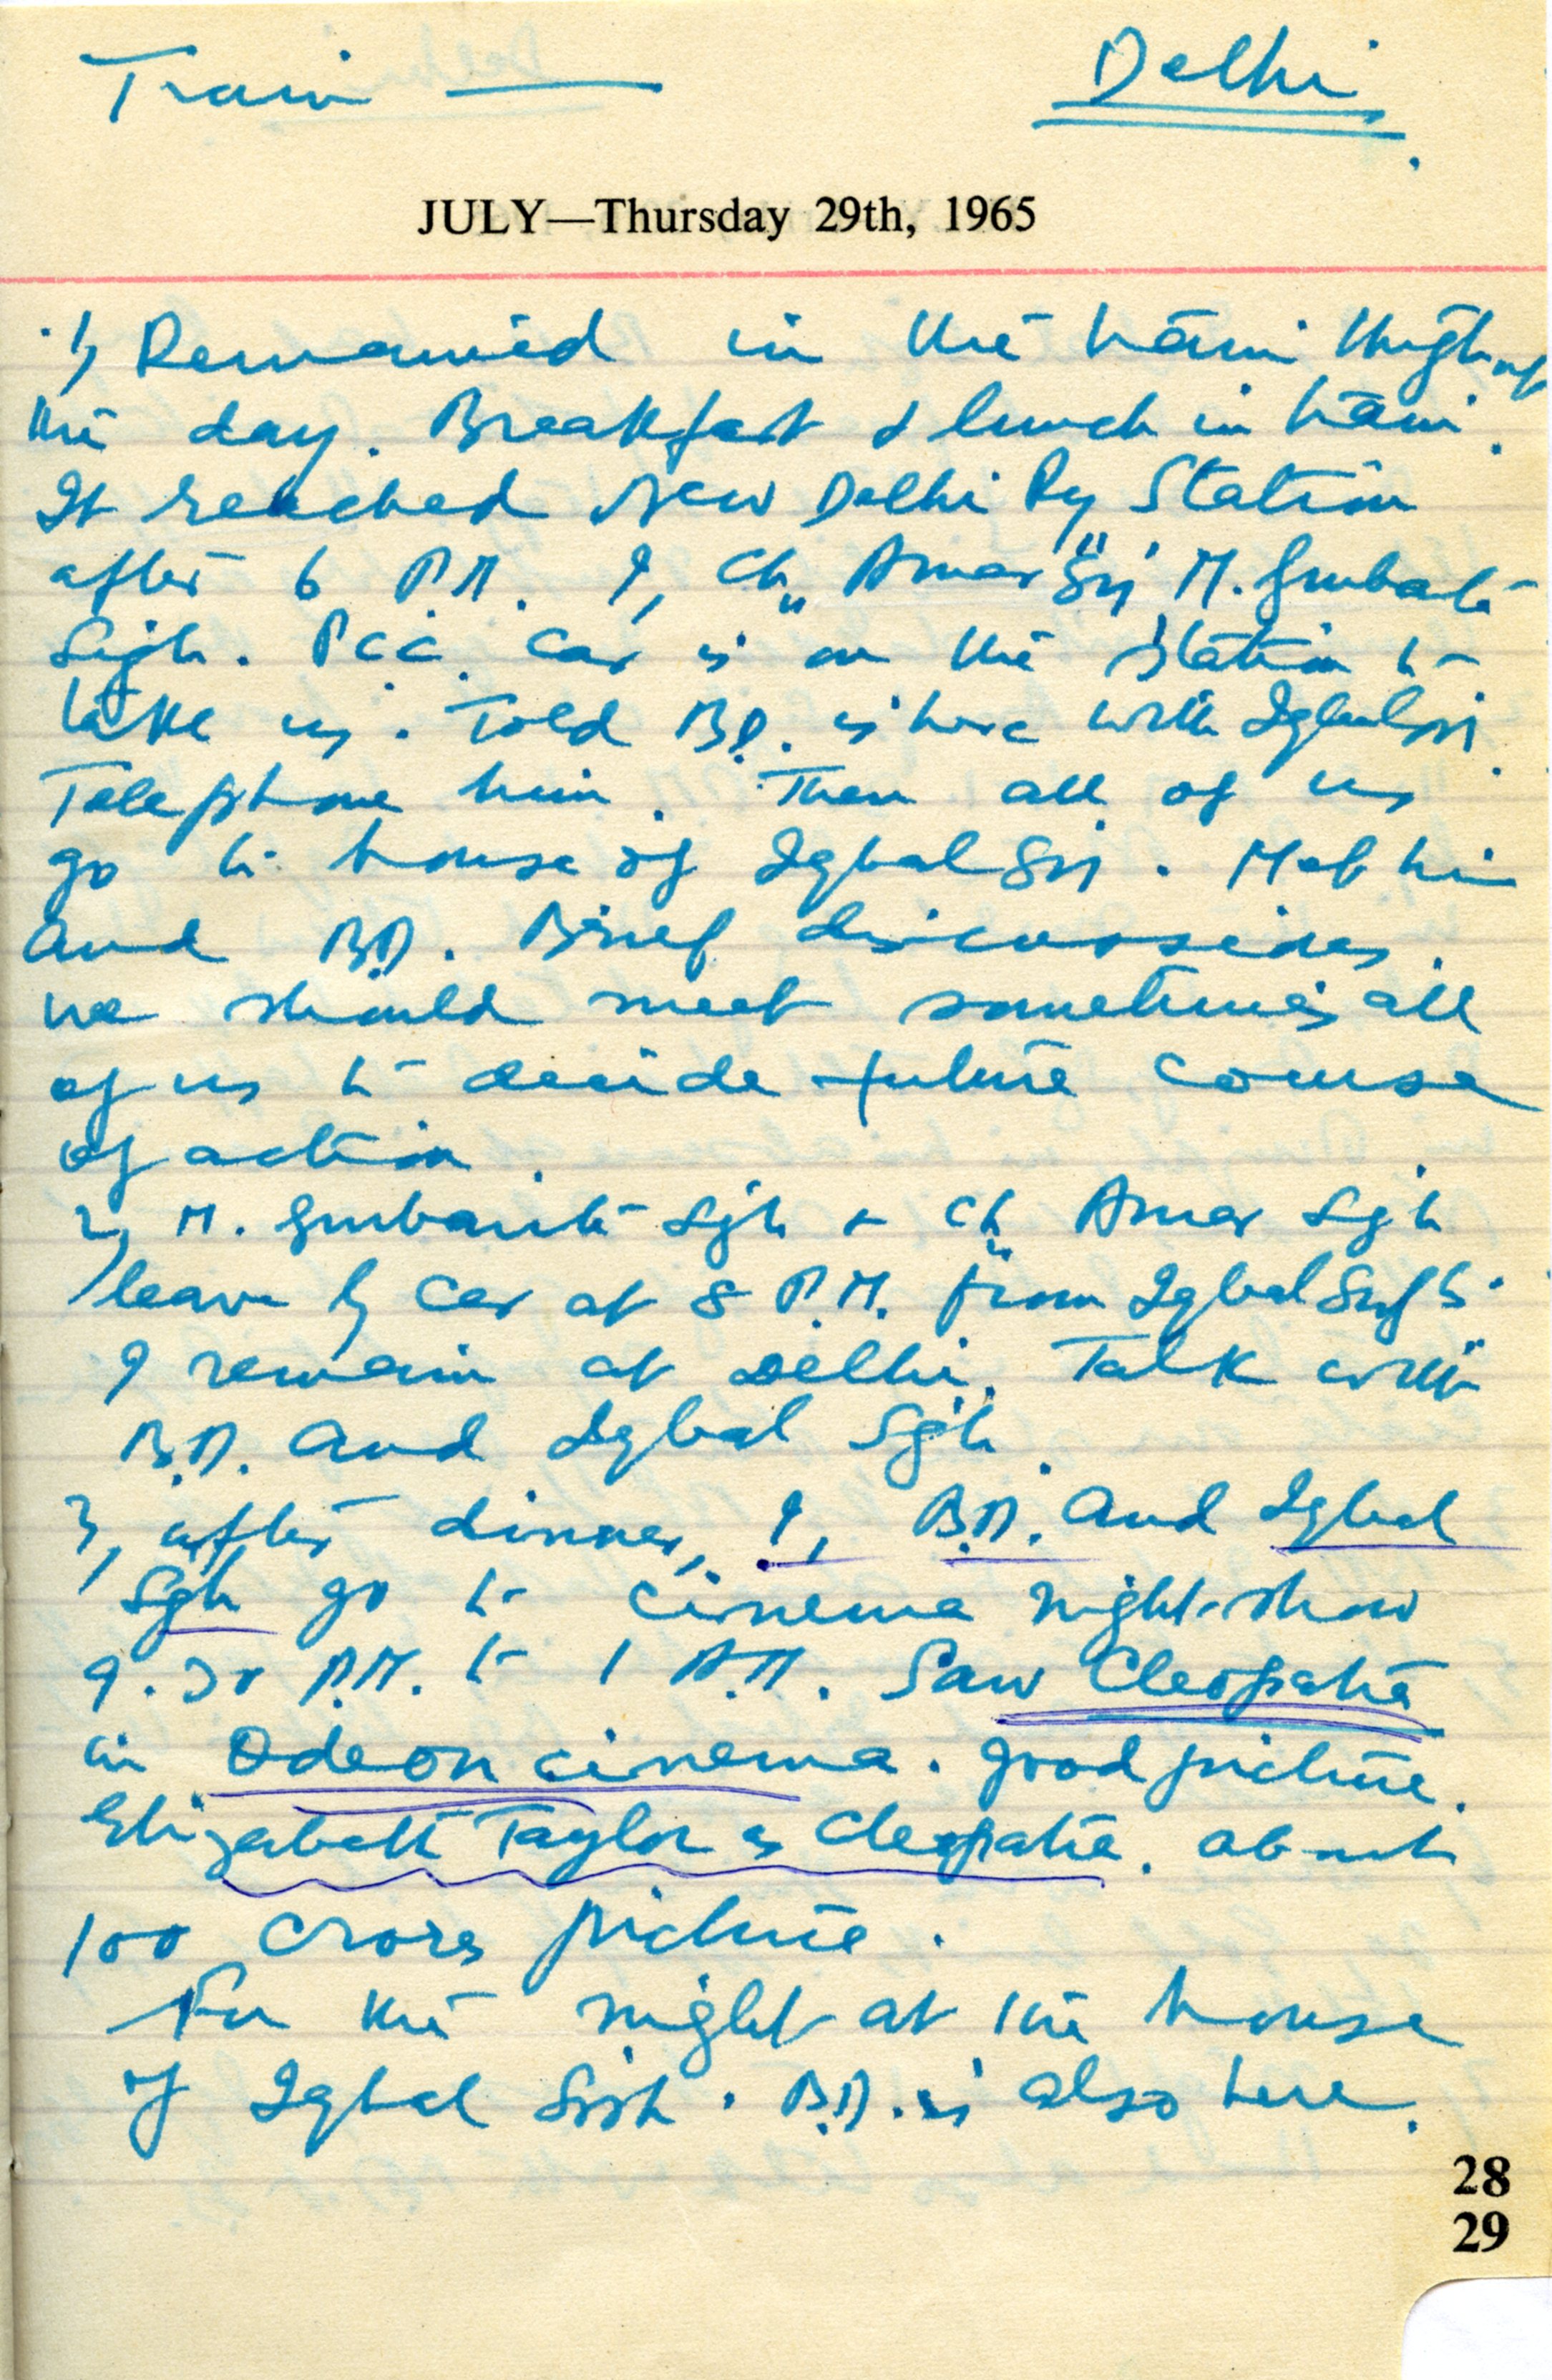 Train — Delhi
JULY—Thursday 29th, 1965
1) Remained in the train through out
the day. Breakfast & lunch in train.
It reached New Delhi Ry Station
after 6 P.M. I, Ch. Amar Sgh, M. Gurbanta
Sigh. P.C.C. Car is on the station to
take us. Told B.D. is here with Iqbal Sgh.
Telephone him. Then all of us
go to house of Iqbal Sgh. Met him
and B.D. Brief discussions.
we should meet sometimes all
of us to decide future course
of action.
2) M. Gurbanta Sgh & Ch. Amar Sgh
leave by Car at 8 P.M. from Iqbal
I remain at Delhi. Talk with
B.D. and Iqbal Sgh.
3) after dinner, I, B.D. and Iqbal
Sgh go to cinema night-show
9.30 P.M. to 1 A.M. Saw Cleopatra
in Odeon cinema. good picture.
Elizabeth Taylor as Cleopatra. about
100 crores picture.
For the night at the house
of Iqbal Sigh. B.D. is also here.
28
29